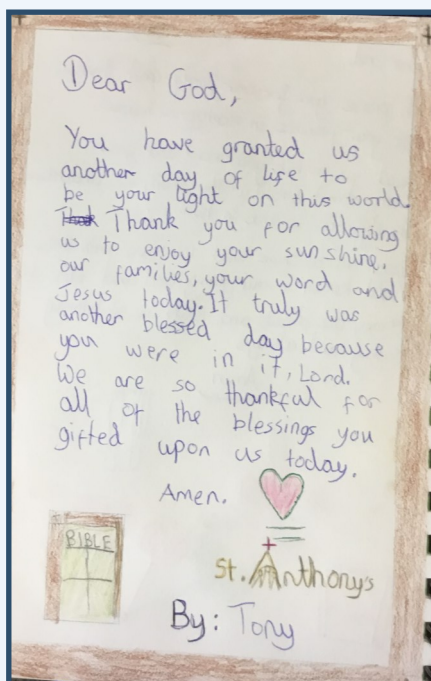 Dear God,
You have granted us
another day of life to
be your light on this world.
Thank you for allowing
us to enjoy your sunshine,
our families, your word and
Jesus today. It truly was
another blessed day because
you were in it, Lord.
We are so thankful for
all of the blessings you
gifted upon us today.
Amen.
BIBLE
St. Anthonys
By: Tony